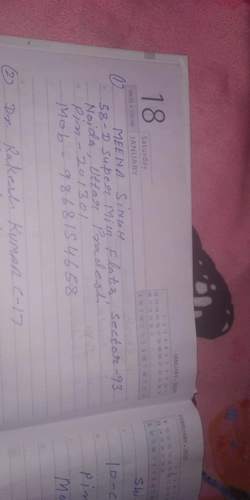 18
Saturday
JANUARY
(1) MEENA SINGH
58-D Super MIG Flats, Sector-93
Noida, Uttar Pradesh
Pin - 201301
Mob - 9868154658
(2) Dr. Rakesh KUMAR C-17
JANUARY-2020
FEBRUARY-2020
10-C
Pin
Mo